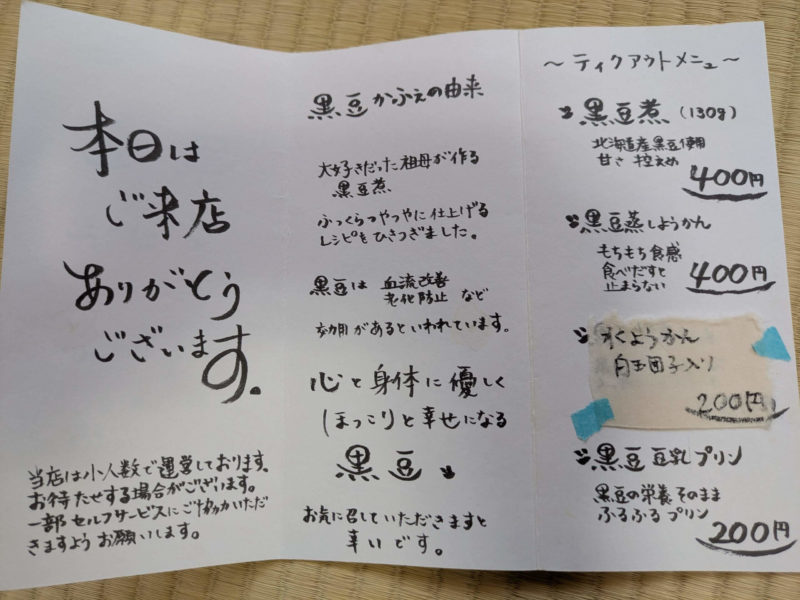 本日は
ご来店
ありがとう
ございます。
当店は小人数で運営しております。
お待たせする場合がございます。
一部セルフサービスにご協力いただ
きますようお願いします。
黒豆かふぇの由来
大好きだった祖母が作る
黒豆煮
ふっくらつやつやに仕上げる
レシピをひきつぎました。
黒豆は 血流改善
老化防止 など
効用があるといわれています。
心と身体に優しく
ほっこりと幸せになる
黒豆
お気に召していただきますと
幸いです。
~ティクアウトメニュー~
黒豆煮(130g)
北海道産黒豆使用
甘さ控えめ
400円
黒豆蒸しようかん
もちもち食感
食べだすと
止まらない
400円
水ようかん
白玉団子入り
200円
黒豆豆乳プリン
黒豆の栄養そのまま
ふるふるプリン
200円